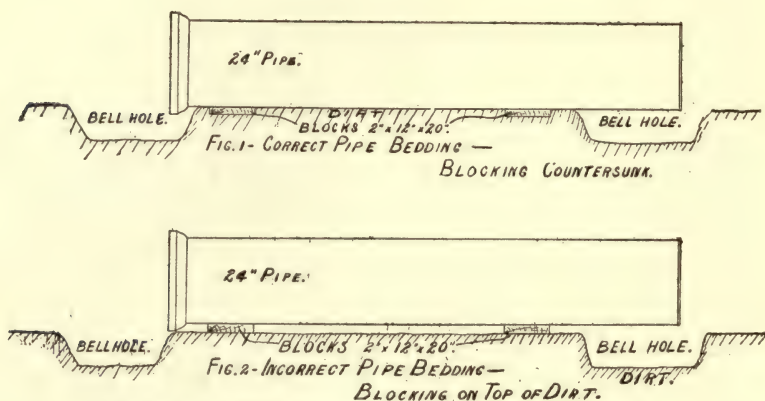 24" PIPE.
DIRT
BELL HOLE.
BLOCKS 2"x12"x20".
BELL HOLE.
FIG. 1 - CORRECT PIPE BEDDING —
BLOCKING COUNTERSUNK.
24" PIPE.
BELL HOLE.
BLOCKS 2"x12"x20".
BELL HOLE.
FIG. 2 - INCORRECT PIPE BEDDING —
DIRT.
BLOCKING ON TOP OF DIRT.